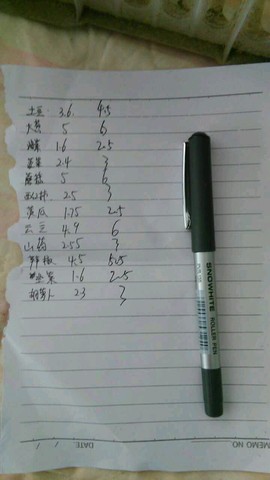 土豆 3.6 4.5
大葱 5 6
1.6 2.5
韭菜 2.4 3
蘑菇 5 6
西红柿 2.5 3
黄瓜 1.75 2.5
云豆 4.9 6
山药 2.55 3
辣椒 4.5 5.5
1.6 2.5
胡萝卜 2.3 3
SNOWHITE ROLLER PEN
MEMO NO.
DATE / /